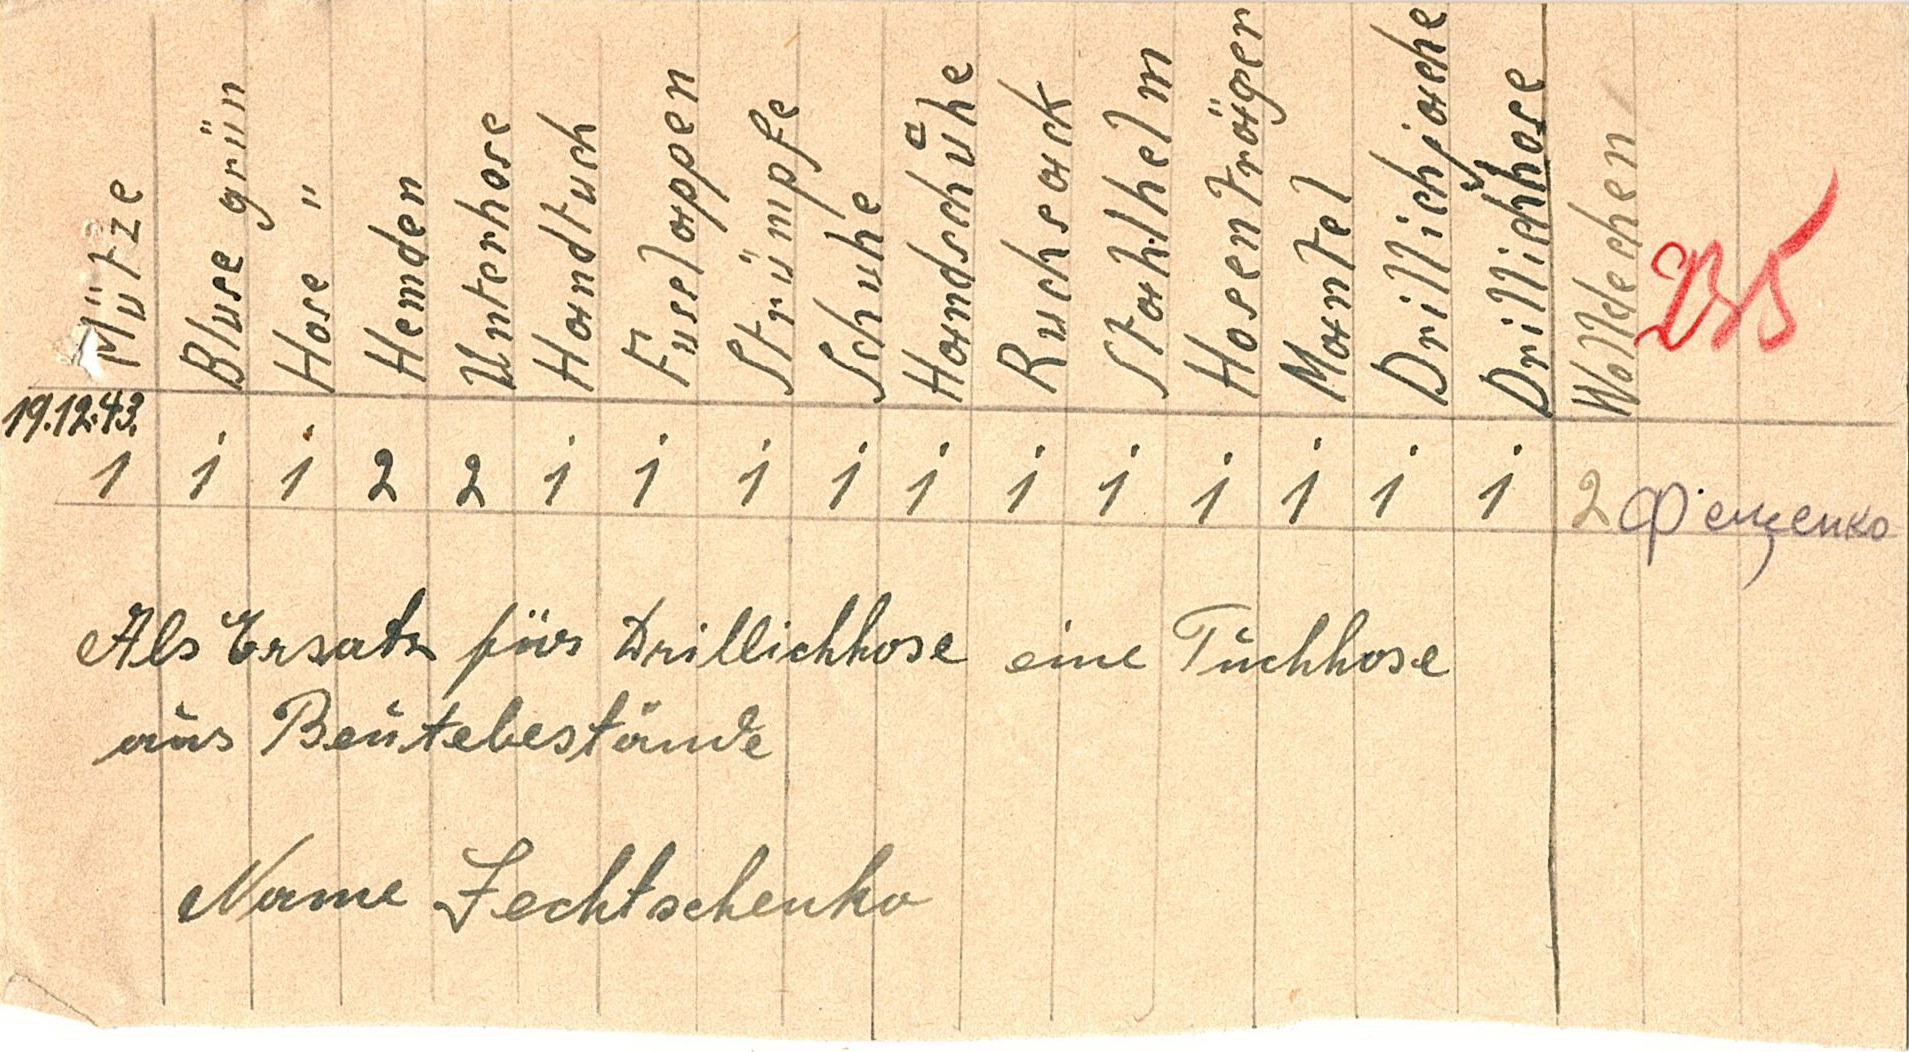 Mütze
Bluse grün
Hose "
Hemden
Unterhose
Handtuch
Fusslappen
Strümpfe
Schuhe
Handschuhe
Rucksack
Stahlhelm
Hosenträger
Mantel
Drillichjacke
Drillichhose
Wolldecken
235
19.12.43.
1 1 1 2 2 1 1 1 1 1 1 1 1 1 1 1 2 Фещенко
Als Ersatz für Drillichhose eine Tuchhose
aus Beutebestände
Name Fechtschenko